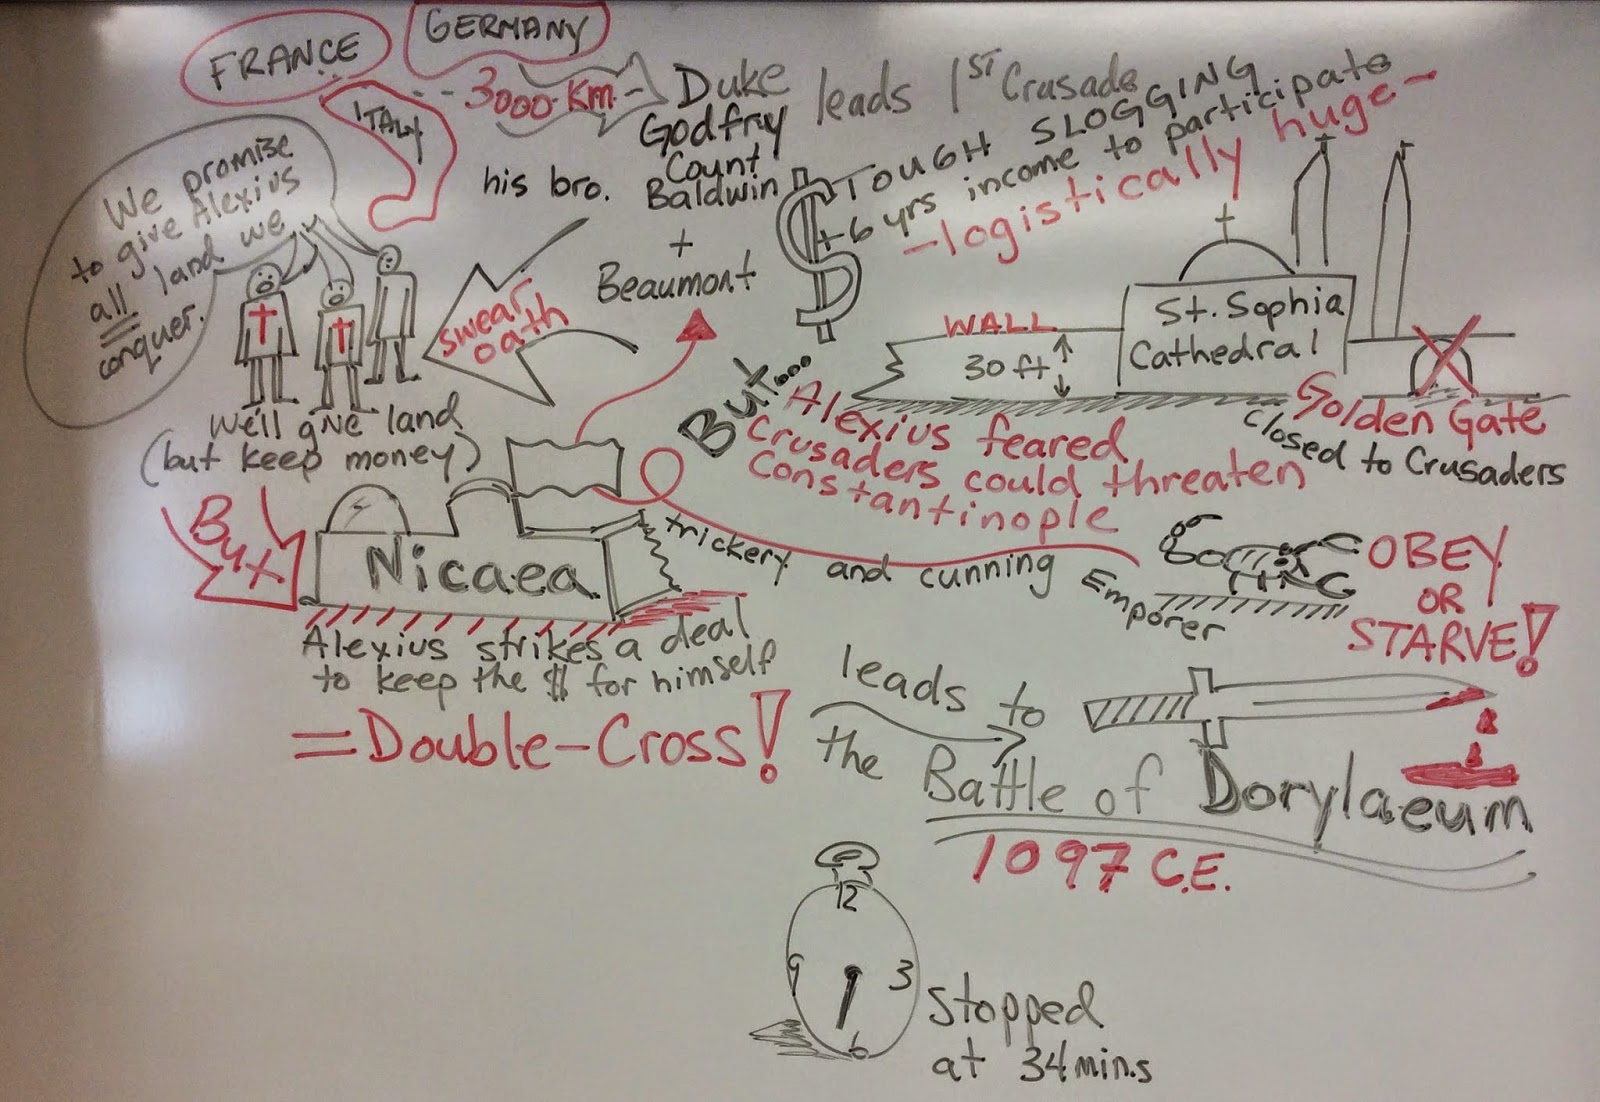 FRANCE
GERMANY
ITALY
3000 Km
Duke
Godfrey
leads 1ST Crusade
his bro.
Count
Baldwin
+
Beaumont
TOUGH SLOGGING
$
+6 yrs income to participate
-logistically huge-
We promise
to give Alexius
all land we
conquer.
swear
oath
We'll give land
(but keep money)
WALL
30 ft
St. Sophia
Cathedral
Golden Gate
closed to Crusaders
But...
Alexius feared
Crusaders could threaten
Constantinople
But
Nicaea
trickery and cunning
Emporer
OBEY
OR
STARVE!
Alexius strikes a deal
to keep the $ for himself
= Double-Cross!
leads to
the Battle of Dorylaeum
1097 C.E.
12
9
3
6
stopped
at 34 mins